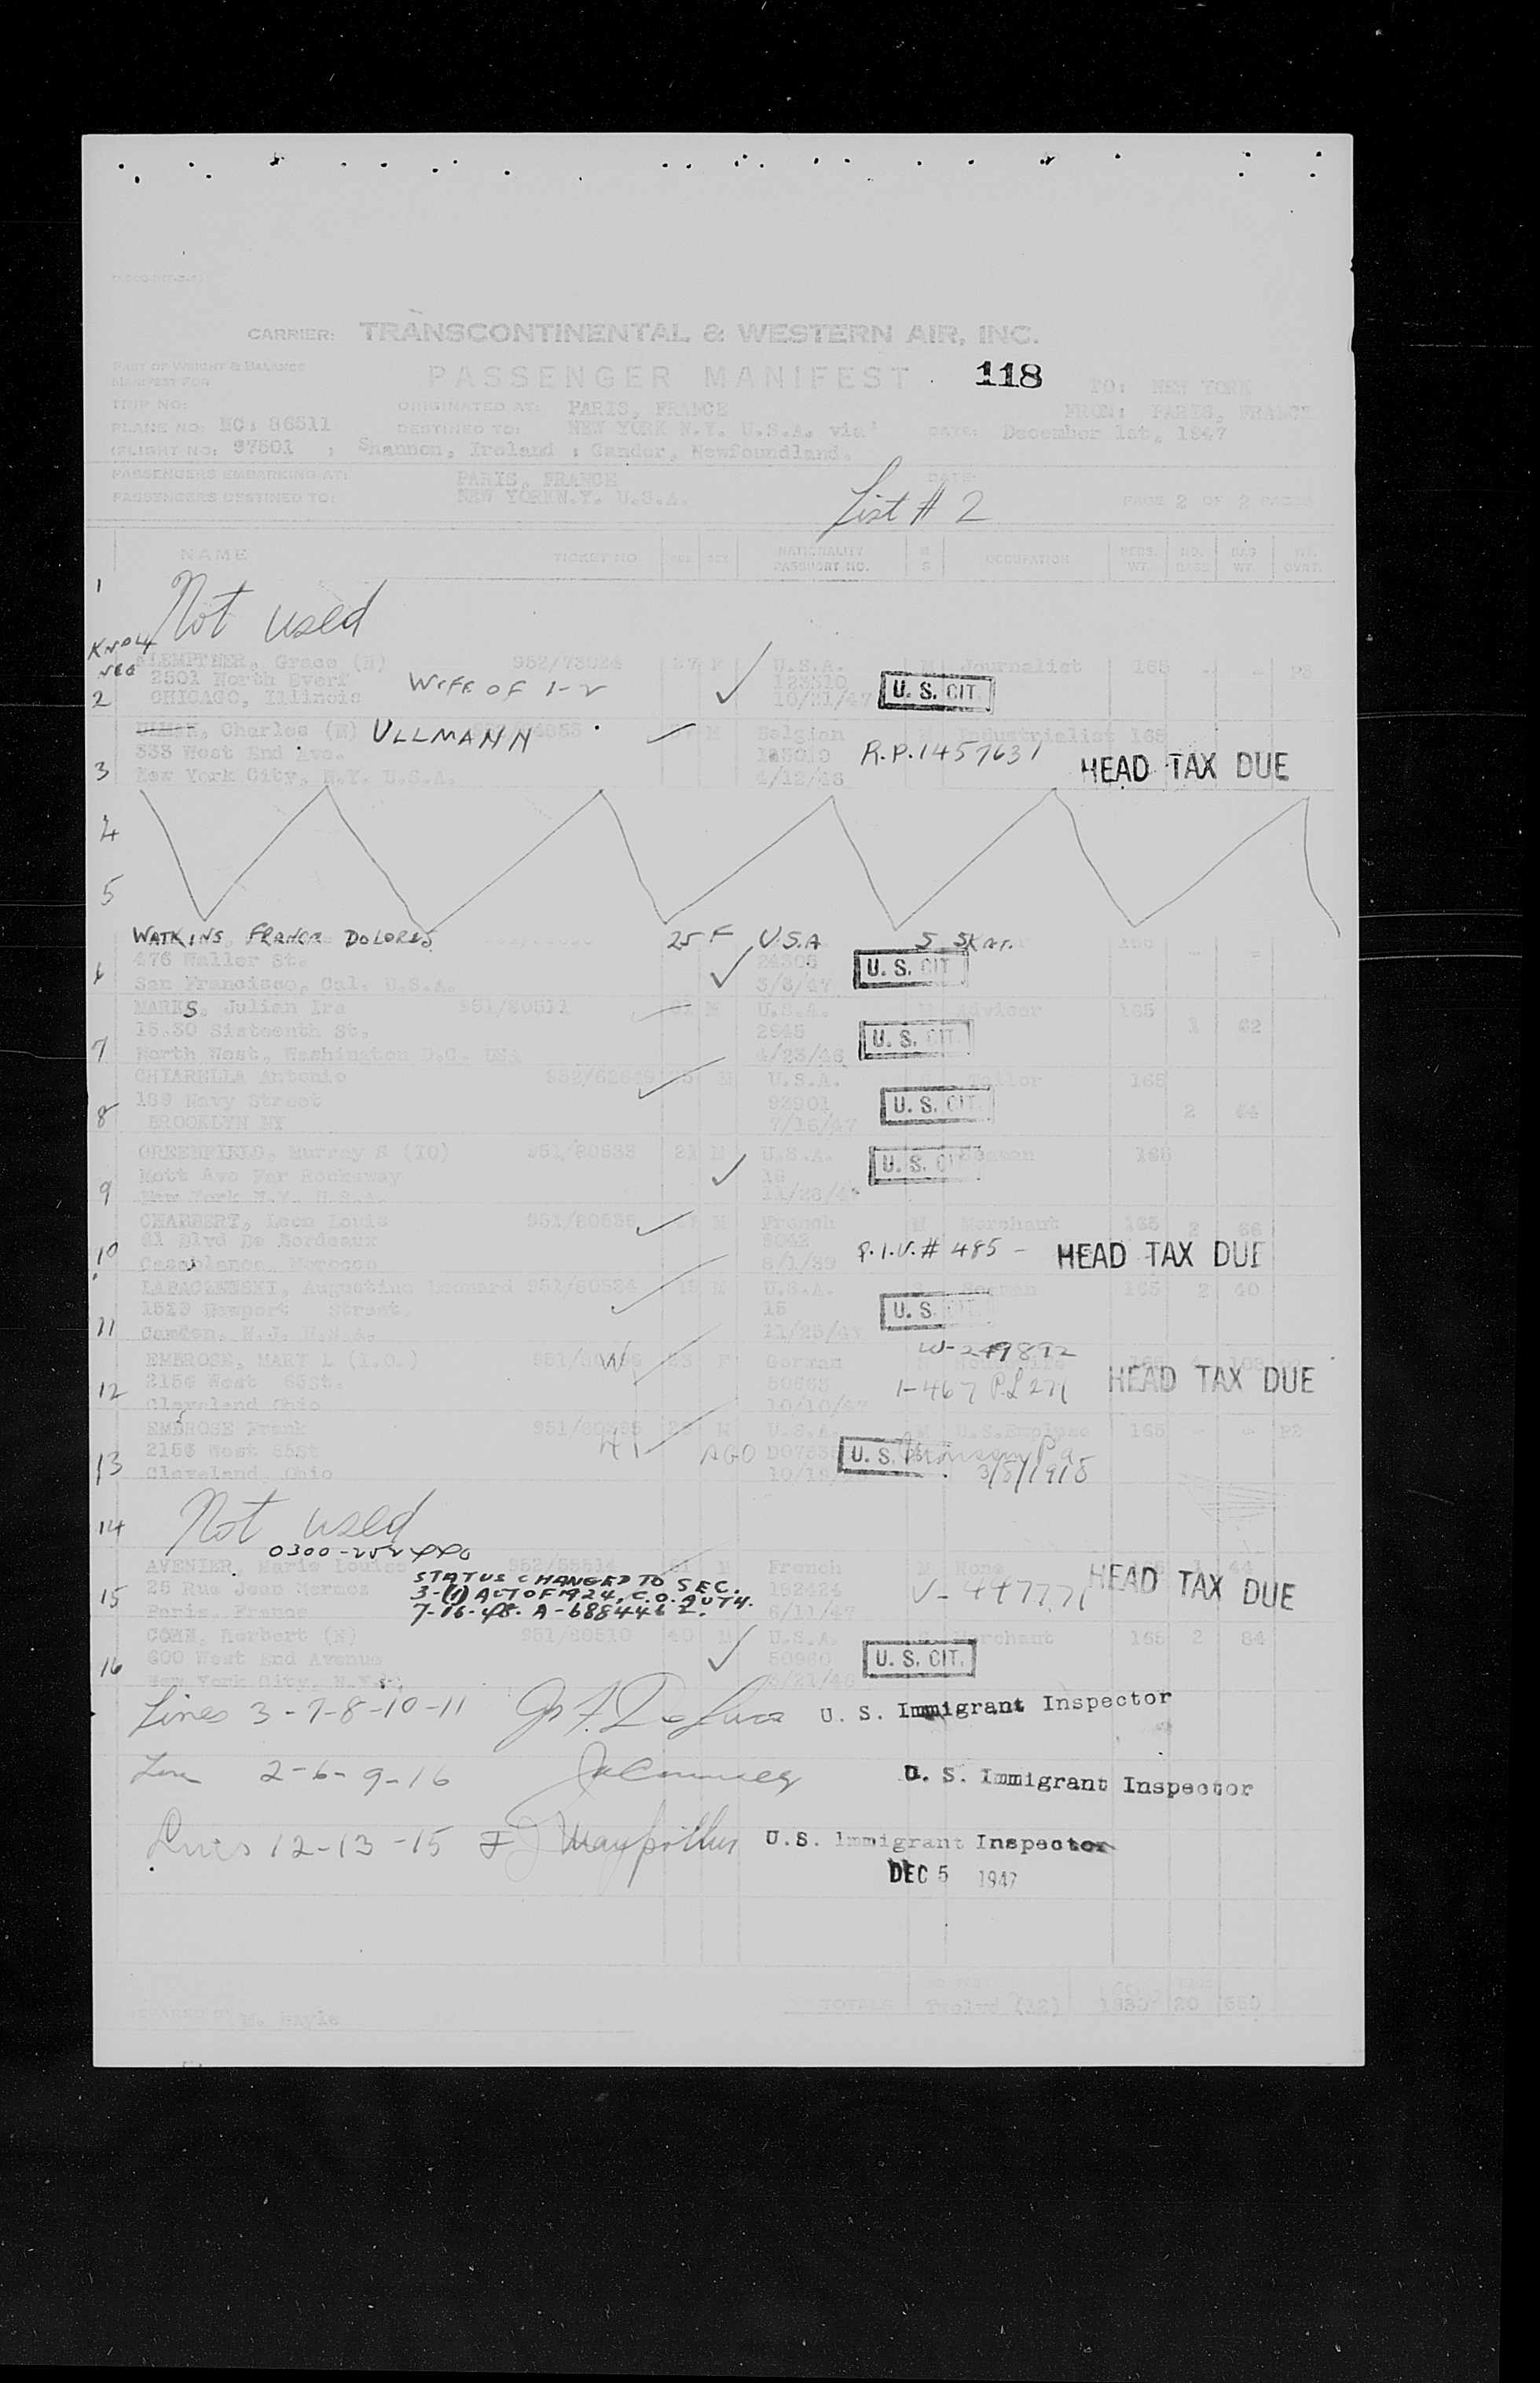 CARRIER: TRANSCONTINENTAL & WESTERN AIR, INC.
PART OF WEIGHT & BALANCE
MANIFEST FOR
PASSENGER MANIFEST 118
TO: NEW YORK
TRIP NO: ORIGINATED AT: PARIS, FRANCE FROM: PARIS, FRANCE
PLANE NO: NC: 86511 DESTINED TO: NEW YORK N.Y. U.S.A. via DATE: December 1st, 1947
(FLIGHT NO: 97501 : Shannon, Ireland : Gander, Newfoundland.
PASSENGERS EMBARKING AT: PARIS, FRANCE DATE:
PASSENGERS DESTINED TO: NEW YORKN.Y. U.S.A. PAGE 2 OF 2 PAGES
List # 2
NAME TICKET NO. AGE SEX NATIONALITY PASSPORT NO. M S OCCUPATION PERS. WT. NO. BAGS BAG WT.
1 Not used
Grace (N) 952/73024 U.S.A. M Journalist 165
2501 North
2 CHICAGO, Illinois WIFE OF 1-2 10/21/47 U. S. CIT.
Charles (N) ULLMANN M Belgian Industrialist 165
333 West End Ave. R.P. 1457631 HEAD TAX DUE
3 New York City, N.Y. U.S.A. 4/12/48
4
5
WATKINS DOLORES 25 F U.S.A S
476 Waller St. 24305 U. S. CIT
6 San Francisco, Cal. U.S.A. 3/3/47
MARKS, Julian Ira 951/80511 M U.S.A. Advisor 165
15.30 Sixteenth St. 2945 U. S. CIT. 1 62
7 North West, Washington D.C. USA 4/23/46
CHIARELLA Antonio 952/62649 M U.S.A. 165
Street 92901 U. S. CIT. 2
8 BROOKLYN NY 7/15/47
GREENFIELD Murray S (IO) 951/80533 21 M U.S.A. Seaman 165
Mott Ave Far Rockaway 16 U. S.
9 New York N.Y. U.S.A. 11/28/47
CHARBERT, Leon Louis 951/80535 M French M Merchant 165 2 66
Blvd De Bordeaux P.I.V.# 485 - HEAD TAX DUE
10 Casablanca, Morocco 8/1/39
Augustine Leonard 951/80534 M U.S.A. Seaman 165 2 40
Newport Street. 15 U. S. CIT.
11 Camden, N.J. U.S.A. 11/25/47
EMBROSE, MARY L (I.O.) W F German W-249892
2156 West 65St. 50663 1-467 P.L 271 HEAD TAX DUE
12 Cleveland Ohio 10/10/47
EMBROSE Frank M U.S.A. M U.S.Employee 165
2156 West 65St AGO U. S. Pa
13 Cleveland, Ohio 3/5/1918
14 Not used
AVENIER, Marie Louise 952/55514 French M None
25 Rue Jean Mermoz STATUS CHANGED TO SEC. 192424 HEAD TAX DUE
15 3-(1) ACT OF 1924, C.O. AUTH. V-447771
Paris, France 7-16-48. A-6884462. 6/11/47
COHN, Herbert (N) 951/80510 40 M U.S.A. S Merchant 165 2 84
600 West End Avenue 50980 U. S. CIT.
16 New York City, N.Y.
Lines 3-7-8-10-11 U. S. Immigrant Inspector
2-6-9-16 U. S. Immigrant Inspector
12-13-15 U.S. Immigrant Inspector
DEC 5 1947
TOTALS (12) 20